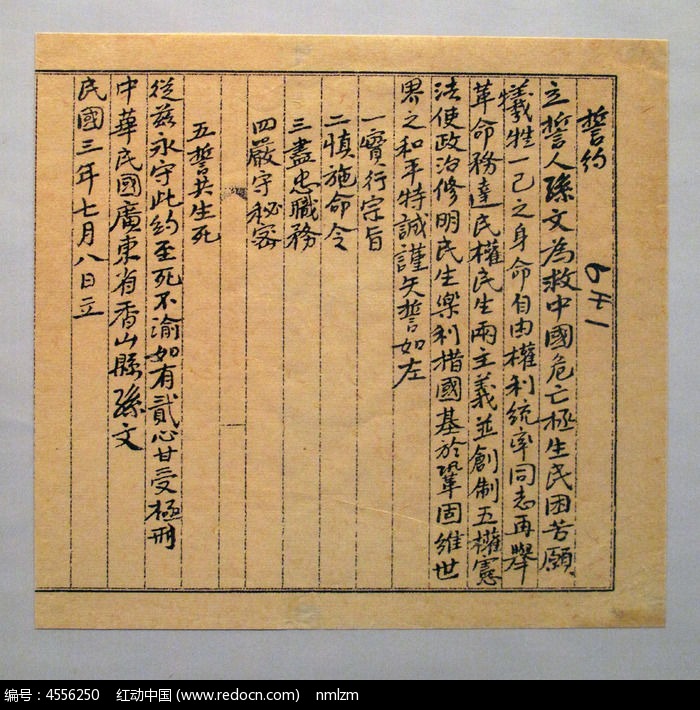 誓約
立誓人孫文為救中國危亡拯生民困苦願
犧牲一己之身命自由權利統率同志再舉
革命務達民權民生兩主義並創制五權憲
法使政治修明民生樂利措國基於鞏固維世
界之和平特誠謹矢誓如左
一實行宗旨
二慎施命令
三盡忠職務
四嚴守秘密
五誓共生死
從茲永守此約至死不渝如有貳心甘受極刑
中華民國廣東省香山縣孫文
民國三年七月八日立
编号：4556250 红动中国 (www.redocn.com) nmlzm